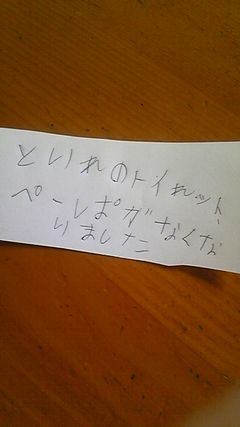 といれのトイれット
ペーしぱがなくな
りました